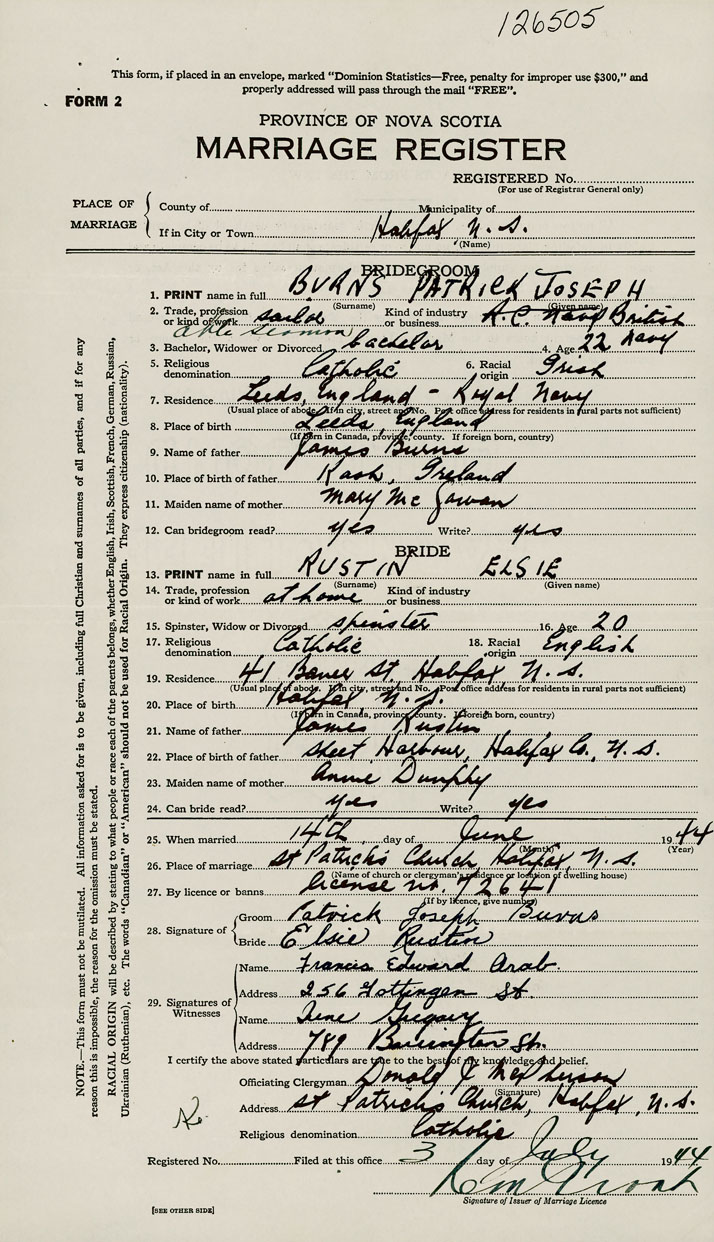 126505
This form, if placed in an envelope, marked "Dominion Statistics—Free, penalty for improper use $300," and
properly addressed will pass through the mail "FREE".
FORM 2
PROVINCE OF NOVA SCOTIA
MARRIAGE REGISTER
REGISTERED No.
(For use of Registrar General only)
PLACE OF MARRIAGE
County of Municipality of
If in City or Town Halifax N.S.
(Name)
BRIDEGROOM
1. PRINT name in full BURNS PATRICK JOSEPH
(Surname) (Given name)
2. Trade, profession or kind of work sailor able seaman Kind of industry or business R.C. Navy British Navy
3. Bachelor, Widower or Divorced bachelor 4. Age 22
5. Religious denomination Catholic 6. Racial origin Irish
7. Residence Leeds, England - Royal Navy
(Usual place of abode. If in city, street and No. Post office address for residents in rural parts not sufficient)
8. Place of birth Leeds, England
(If born in Canada, province, county. If foreign born, country)
9. Name of father James Burns
10. Place of birth of father Ireland
11. Maiden name of mother Mary McGowan
12. Can bridegroom read? yes Write? yes
BRIDE
13. PRINT name in full RUSTIN ELSIE
(Surname) (Given name)
14. Trade, profession or kind of work at home Kind of industry or business
15. Spinster, Widow or Divorced spinster 16. Age 20
17. Religious denomination Catholic 18. Racial origin English
19. Residence 41 St, Halifax, N.S.
(Usual place of abode. If in city, street and No. Post office address for residents in rural parts not sufficient)
20. Place of birth Halifax N.S.
(If born in Canada, province, county. If foreign born, country)
21. Name of father James Rustin
22. Place of birth of father Sheet Harbour, Halifax Co., N.S.
23. Maiden name of mother Annie Dunphy
24. Can bride read? yes Write? yes
25. When married 14th day of June 1944
(Month) (Year)
26. Place of marriage St Patrick's Church, Halifax, N.S.
(Name of church or clergyman's residence or location of dwelling house)
27. By licence or banns license no. 72641
(If by licence, give number)
28. Signature of
Groom Patrick Joseph Burns
Bride Elsie Rustin
29. Signatures of Witnesses
Name Francis Edward Arab.
Address 256 Gottingen St.
Name June Gregory
Address 789 Barrington St.
I certify the above stated particulars are true to the best of my knowledge and belief.
Officiating Clergyman Donald J McPherson
(Signature)
Address St Patrick's Church, Halifax, N.S.
Religious denomination Catholic
Registered No. Filed at this office 3 day of July 1944
Signature of Issuer of Marriage Licence
[SEE OTHER SIDE]
NOTE.—This form must not be mutilated. All information asked for is to be given, including full Christian and surnames of all parties, and if for any
reason this is impossible, the reason for the omission must be stated.
RACIAL ORIGIN will be described by stating to what people or race each of the parents belongs, whether English, Irish, Scottish, French, German, Russian,
Ukrainian (Ruthenian), etc. The words "Canadian" or "American" should not be used for Racial Origin. They express citizenship (nationality).